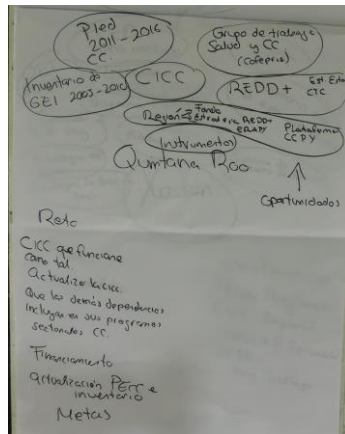 Pled
2011-2016
CC.
Grupo de trabajo
Salud y CC
(Cofepris)
Inventario de
GEI 2005-2010
CICC
REDD+
Est. Esta
CTC
Región
Fondo
Estrategia REDD+
Plataforma
CCPY
Instrumentos
Quintana Roo
Oportunidades
Reto
CICC que funcione
como tal.
Actualizo la CICC.
Que las demás dependencias
incluyan en sus programas
sectoriales CC.
Financiamiento
actualización PECC e
inventario
Metas